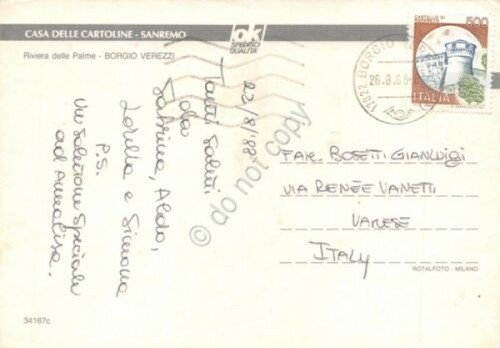 CASA DELLE CARTOLINE - SANREMO
Riviera delle Palme - BORGIO VEREZZI
ok
SPEDISCI
QUALITÀ
CASTELLO DI
500
ITALIA
17022 BORGIO
26.8.88
22/8/'88
Tanti saluti
da
Sabrina, Aldo,
Lorella e Simona
P.S.
Un salutone speciale
ad Annalisa.
FAM. BOSETTI GIANLUIGI
VIA RENÉE VANETTI
VARESE
ITALY
ROTALFOTO - MILANO
34167c
© do not copy